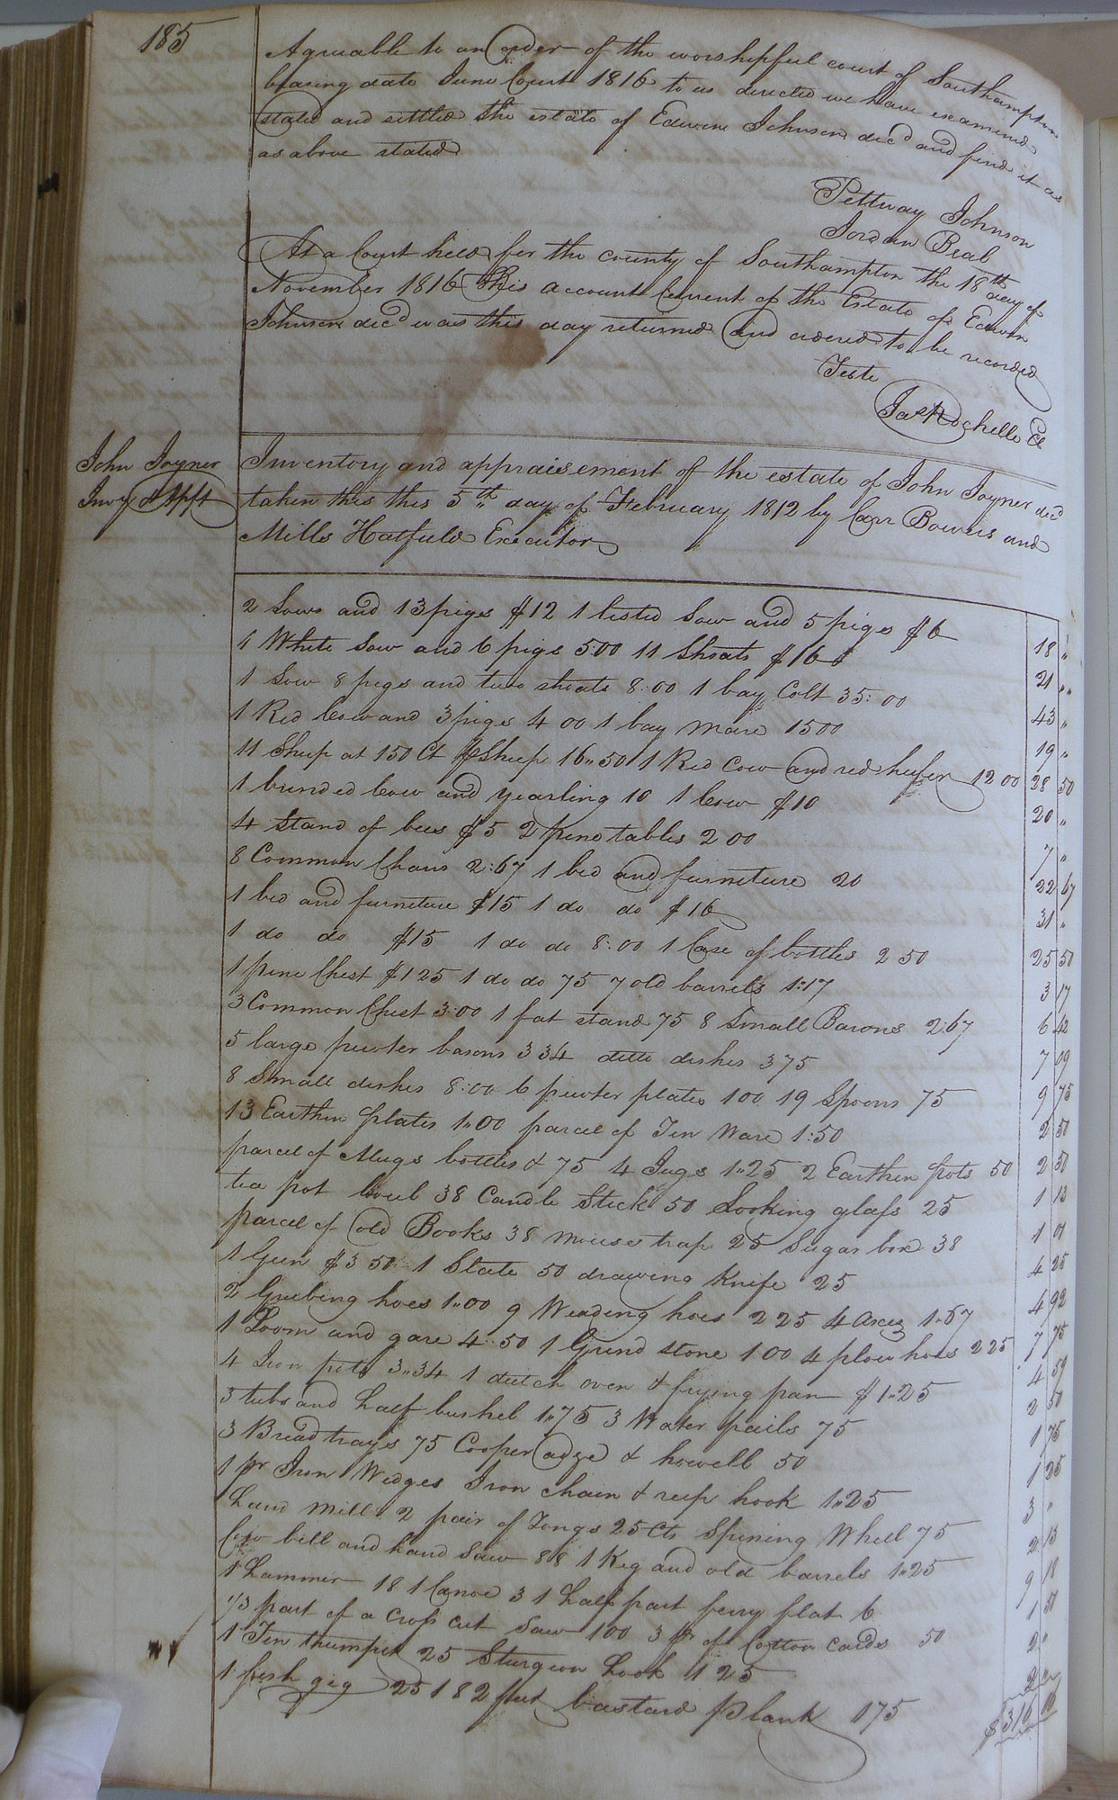 185
Agreeable to an order of the worshipfull court of Southampton
bearing date June Court 1816 to us directed we have examined
stated and settled the estate of Edwin Johnson decd and find it as
as above stated
Pettway Johnson
Jordan Beal
At a Court held for the county of Southampton the 18th day of
November 1816 This account Current of the Estate of Edwin
Johnson decd was this day returned and ordered to be recorded
Teste
Jas Rochelle Cl
John Joyner
Invy & Appt
Inventory and appraisement of the estate of John Joyner decd
taken this this 5th day of February 1812 by Carr Bowers and
Mills Hatfield Executors
2 Sows and 13 piges $12 1 listed Sow and 5 piges $6 18 "
1 White Sow and 6 pigs 500 11 Shoats $16 21 "
1 Sow 8 pegs and two shoats 8:00 1 bay Colt 35:00 43 "
1 Red Cow and 3 piges 4 00 1 bay mare 1500 19 "
11 Sheep at 150 Ct Sheep 16"50 1 Red Cow and red heifer 12 00 28 50
1 brinded Cow and yearling 10 1 Cow $10 20 "
4 Stand of bees $5 2 pine tables 2 00 7 "
8 Common Chairs 2:67 1 bed and furniture 20 22 67
1 bed and furniture $15 1 do do $16 31 "
1 do do $15 1 do do 8:00 1 Case of bottles 2 50 25 50
1 pine Chest $125 1 do do 75 7 old barrels 1:17 3 17
3 Common Chest 3:00 1 fat stand 75 8 Small Basons 267 6 42
5 large pewter basons 3 34 ditto dishes 375 7 09
8 Small dishes 8:00 6 pewter plates 100 19 Spoons 75 9 75
13 Earthen plates 1"00 parcel of Tin Ware 1:50 2 50
parcel of Mugs bottles & 75 4 Jugs 1"25 2 Earthen pots 50 2 50
tea pot bowl 38 Candle Stick 50 Looking glass 25 1 13
parcel of old Books 38 mouse trap 25 Sugar box 38 1 01
1 Gun $3 50 1 Slate 50 drawing Knife 25 4 25
2 Grubing hoes 1"00 9 Weading hoes 2 25 4 axes 1"67 4 92
1 Loom and gare 4"50 1 Grind stone 1 00 4 plow hoes 2 25 7 75
4 Iron pots 3"34 1 dutch oven & frying pan $1"25 4 59
3 tubs and half bushel 1"75 3 Water pails 75 2 50
3 Bread trays 75 Cooper adze & howell 50 1 25
1 pr Iron Wedges Iron chain & reep hook 1"25 1 25
hand mill 2 pair of Tongs 25 Cts Spining Wheel 75 3 "
bill and hand Saw 88 1 Keg and old barrels 1"25 2 13
1 hammer 18 1 Canoe 3 1 half part ferry flat 6 9 18
1/3 part of a Cross cut Saw 100 3 pr of Cotton cards 50 1 51
1 Tin trumpet 25 Sturgeon hook 1 25 2 "
1 fish gig 25 182 feet bastard Plank 175 2 "
$316 16